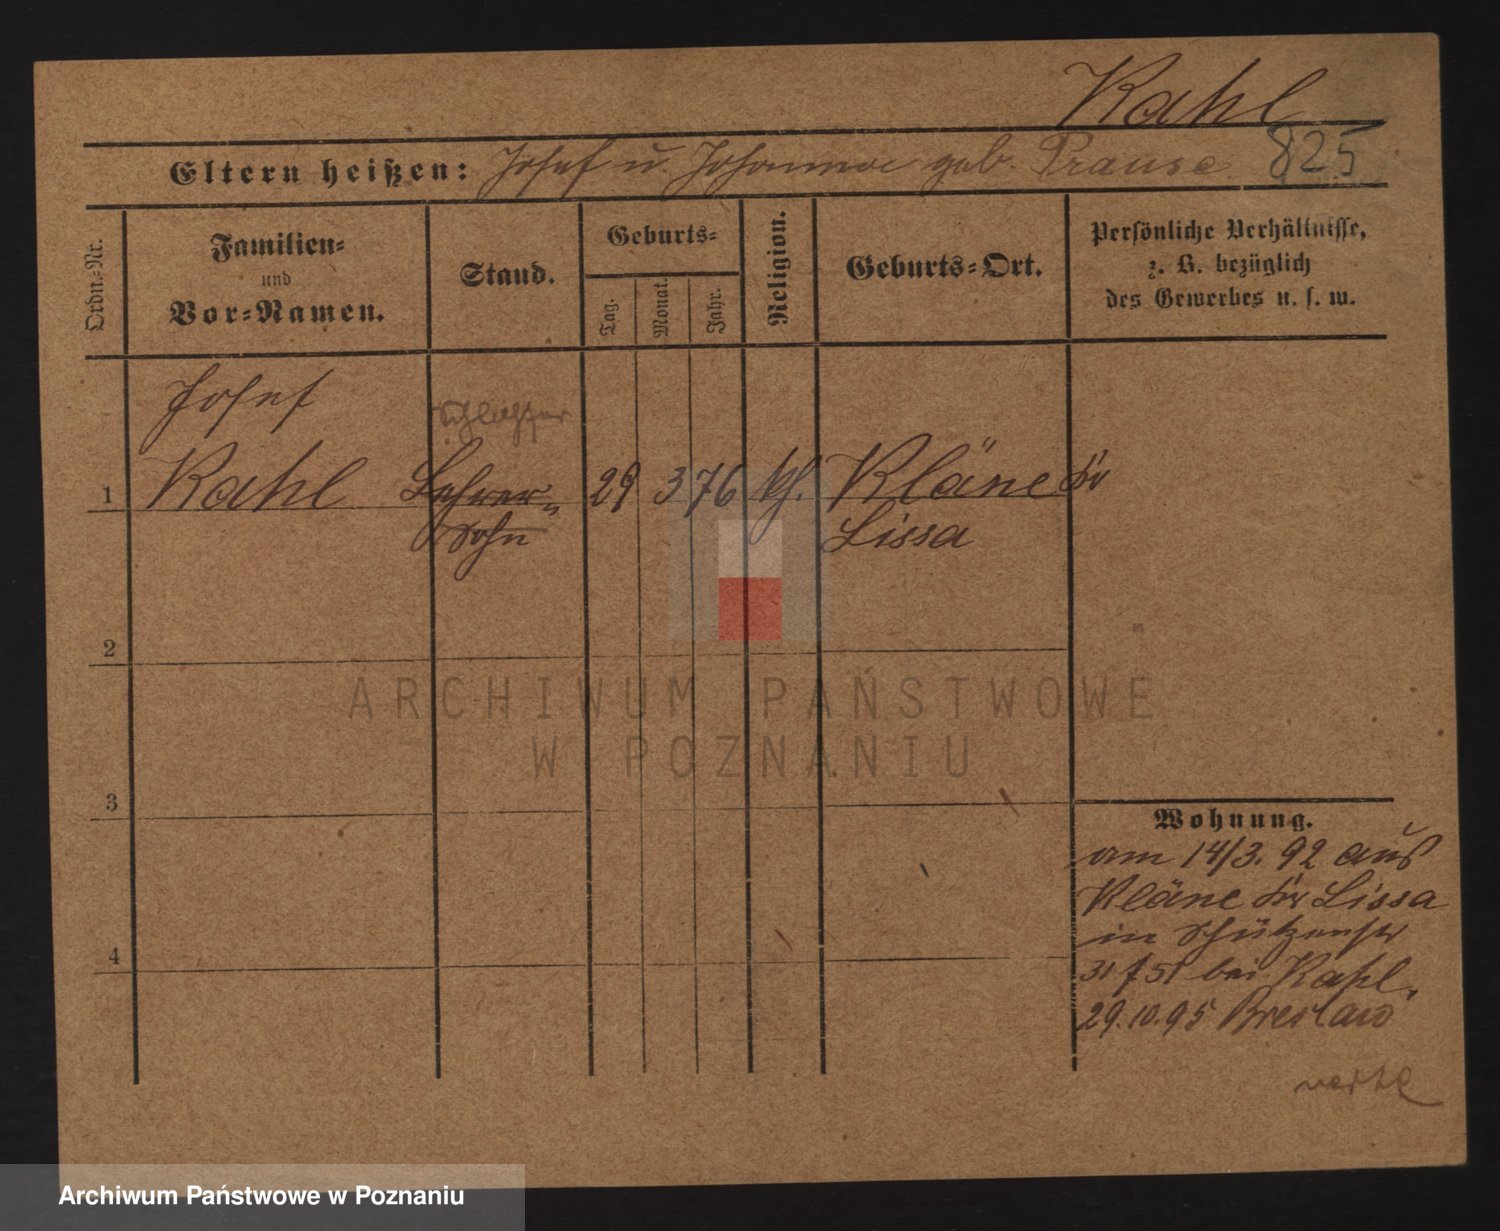 Kahl
825
Eltern heißen: Josef u. Johanna geb. Prause
Ordn.-Nr.
Familien-
und
Vor-Namen.
Stand.
Geburts-
Tag.
Monat.
Jahr.
Religion.
Geburts-Ort.
Persönliche Verhältnisse,
z. B. bezüglich
des Gewerbes u. s. w.
Josef
1 Kahl Lehrer- 29 3 76 kh. Kläne Kr
Sohn Lissa
2
3
4
Wohnung.
am 14/3. 92 aus
Kläne Kr Lissa
in Schützenstr
31 bei Kahl.
29.10.95 Breslau
ARCHIWUM PAŃSTWOWE
W POZNANIU
Archiwum Państwowe w Poznaniu